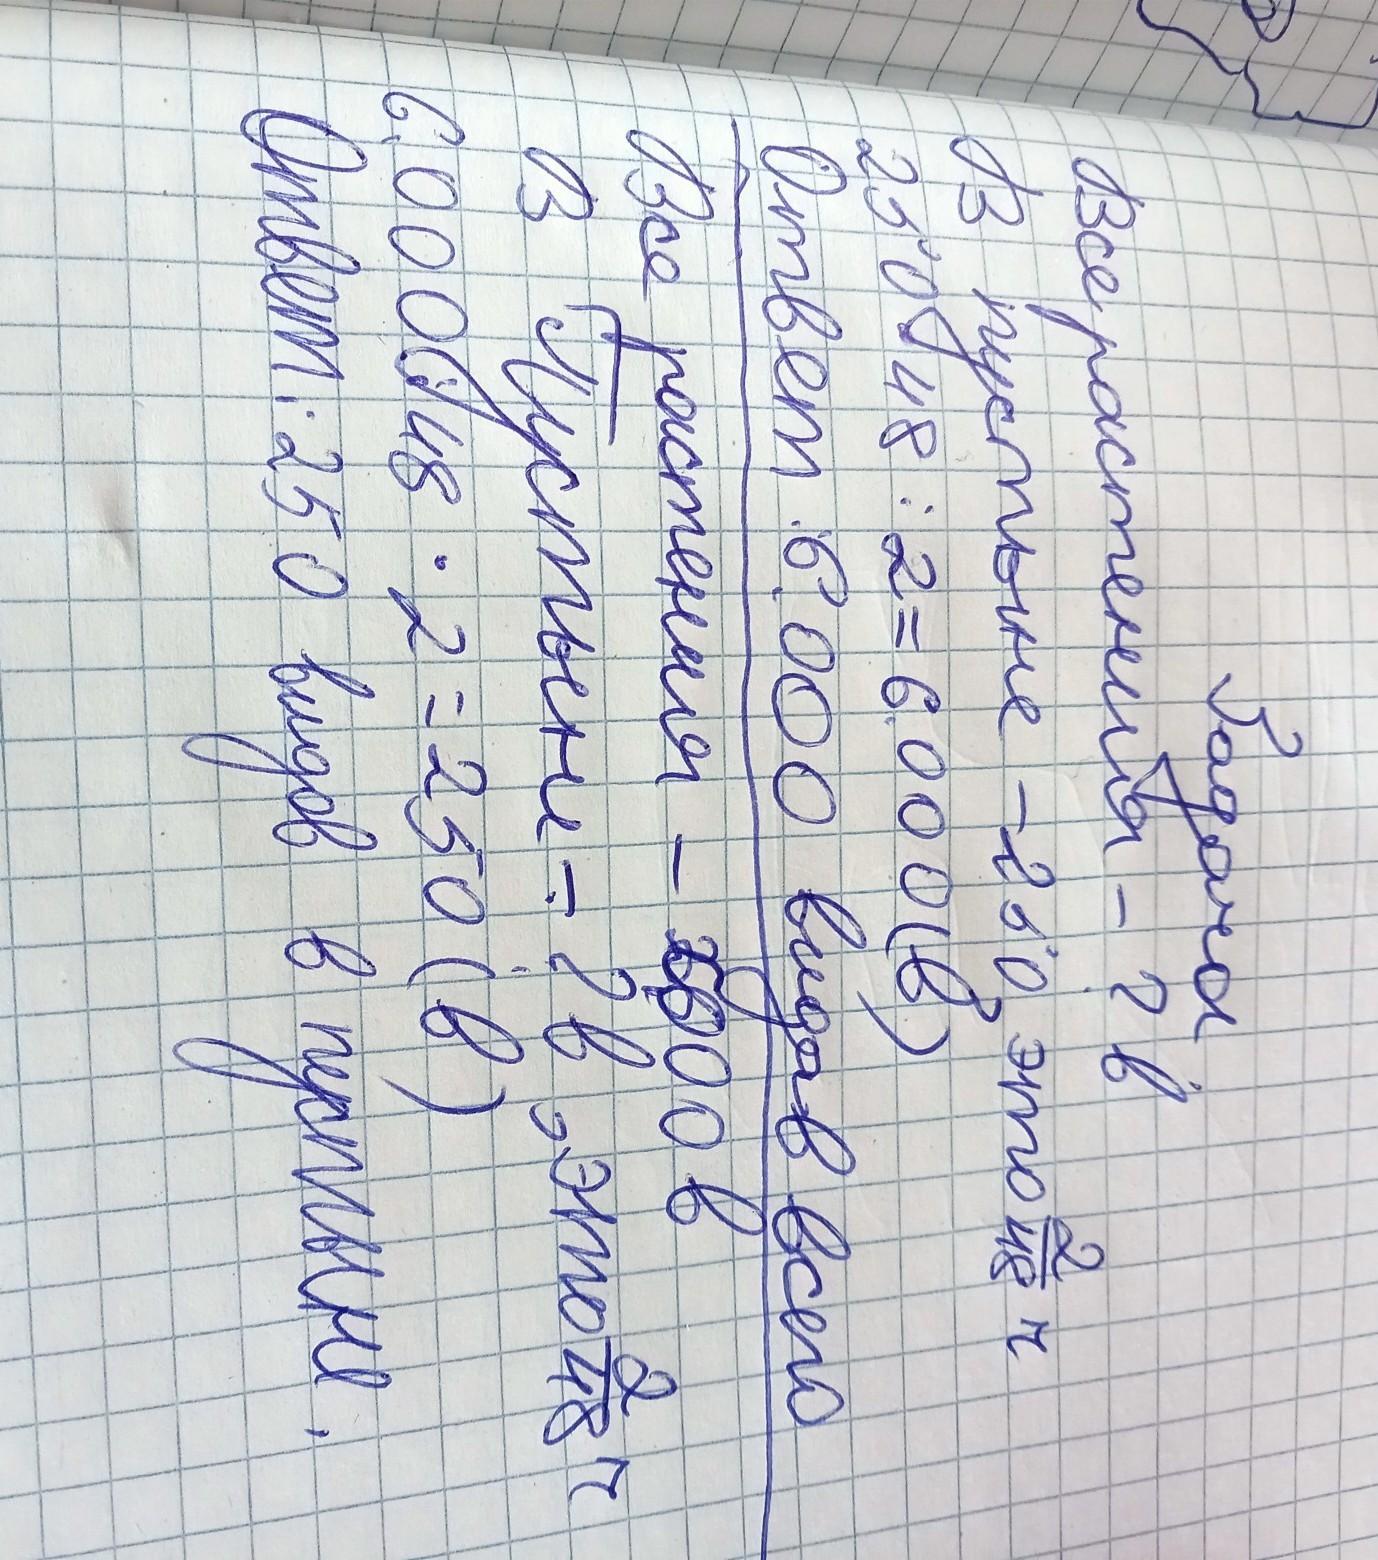 Задача
Все растения - ? в
В пустыне - 250, это 2/48 ч
250·48:2=6.000(в)
Ответ:6.000 видов всего
Все растения - 6000 в
В Пустыне - ? в, это 2/48 ч
6.000:48·2=250(в)
Ответ:250 видов в пустыне.